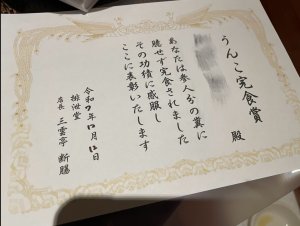 うんこ完食賞
殿
あなたは参人分の糞に
臆せず完食されました
その功績に感服し
ここに表彰いたします
令和7年12月12日
排泄堂
店長 三雲亭 断腸